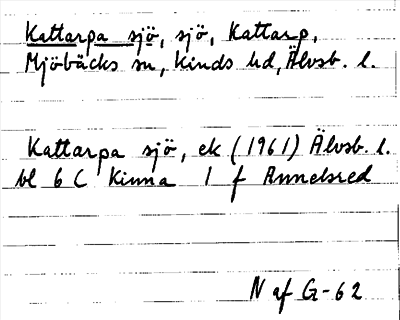 Kattarpa sjö, sjö, Kattarp,
Mjöbäcks sn, Kinds hd, Älvsb. l.
Kattarpa sjö, ek (1961) Älvsb. l.
bl 6 C Kinna 1 f Annelsred
N af G-62